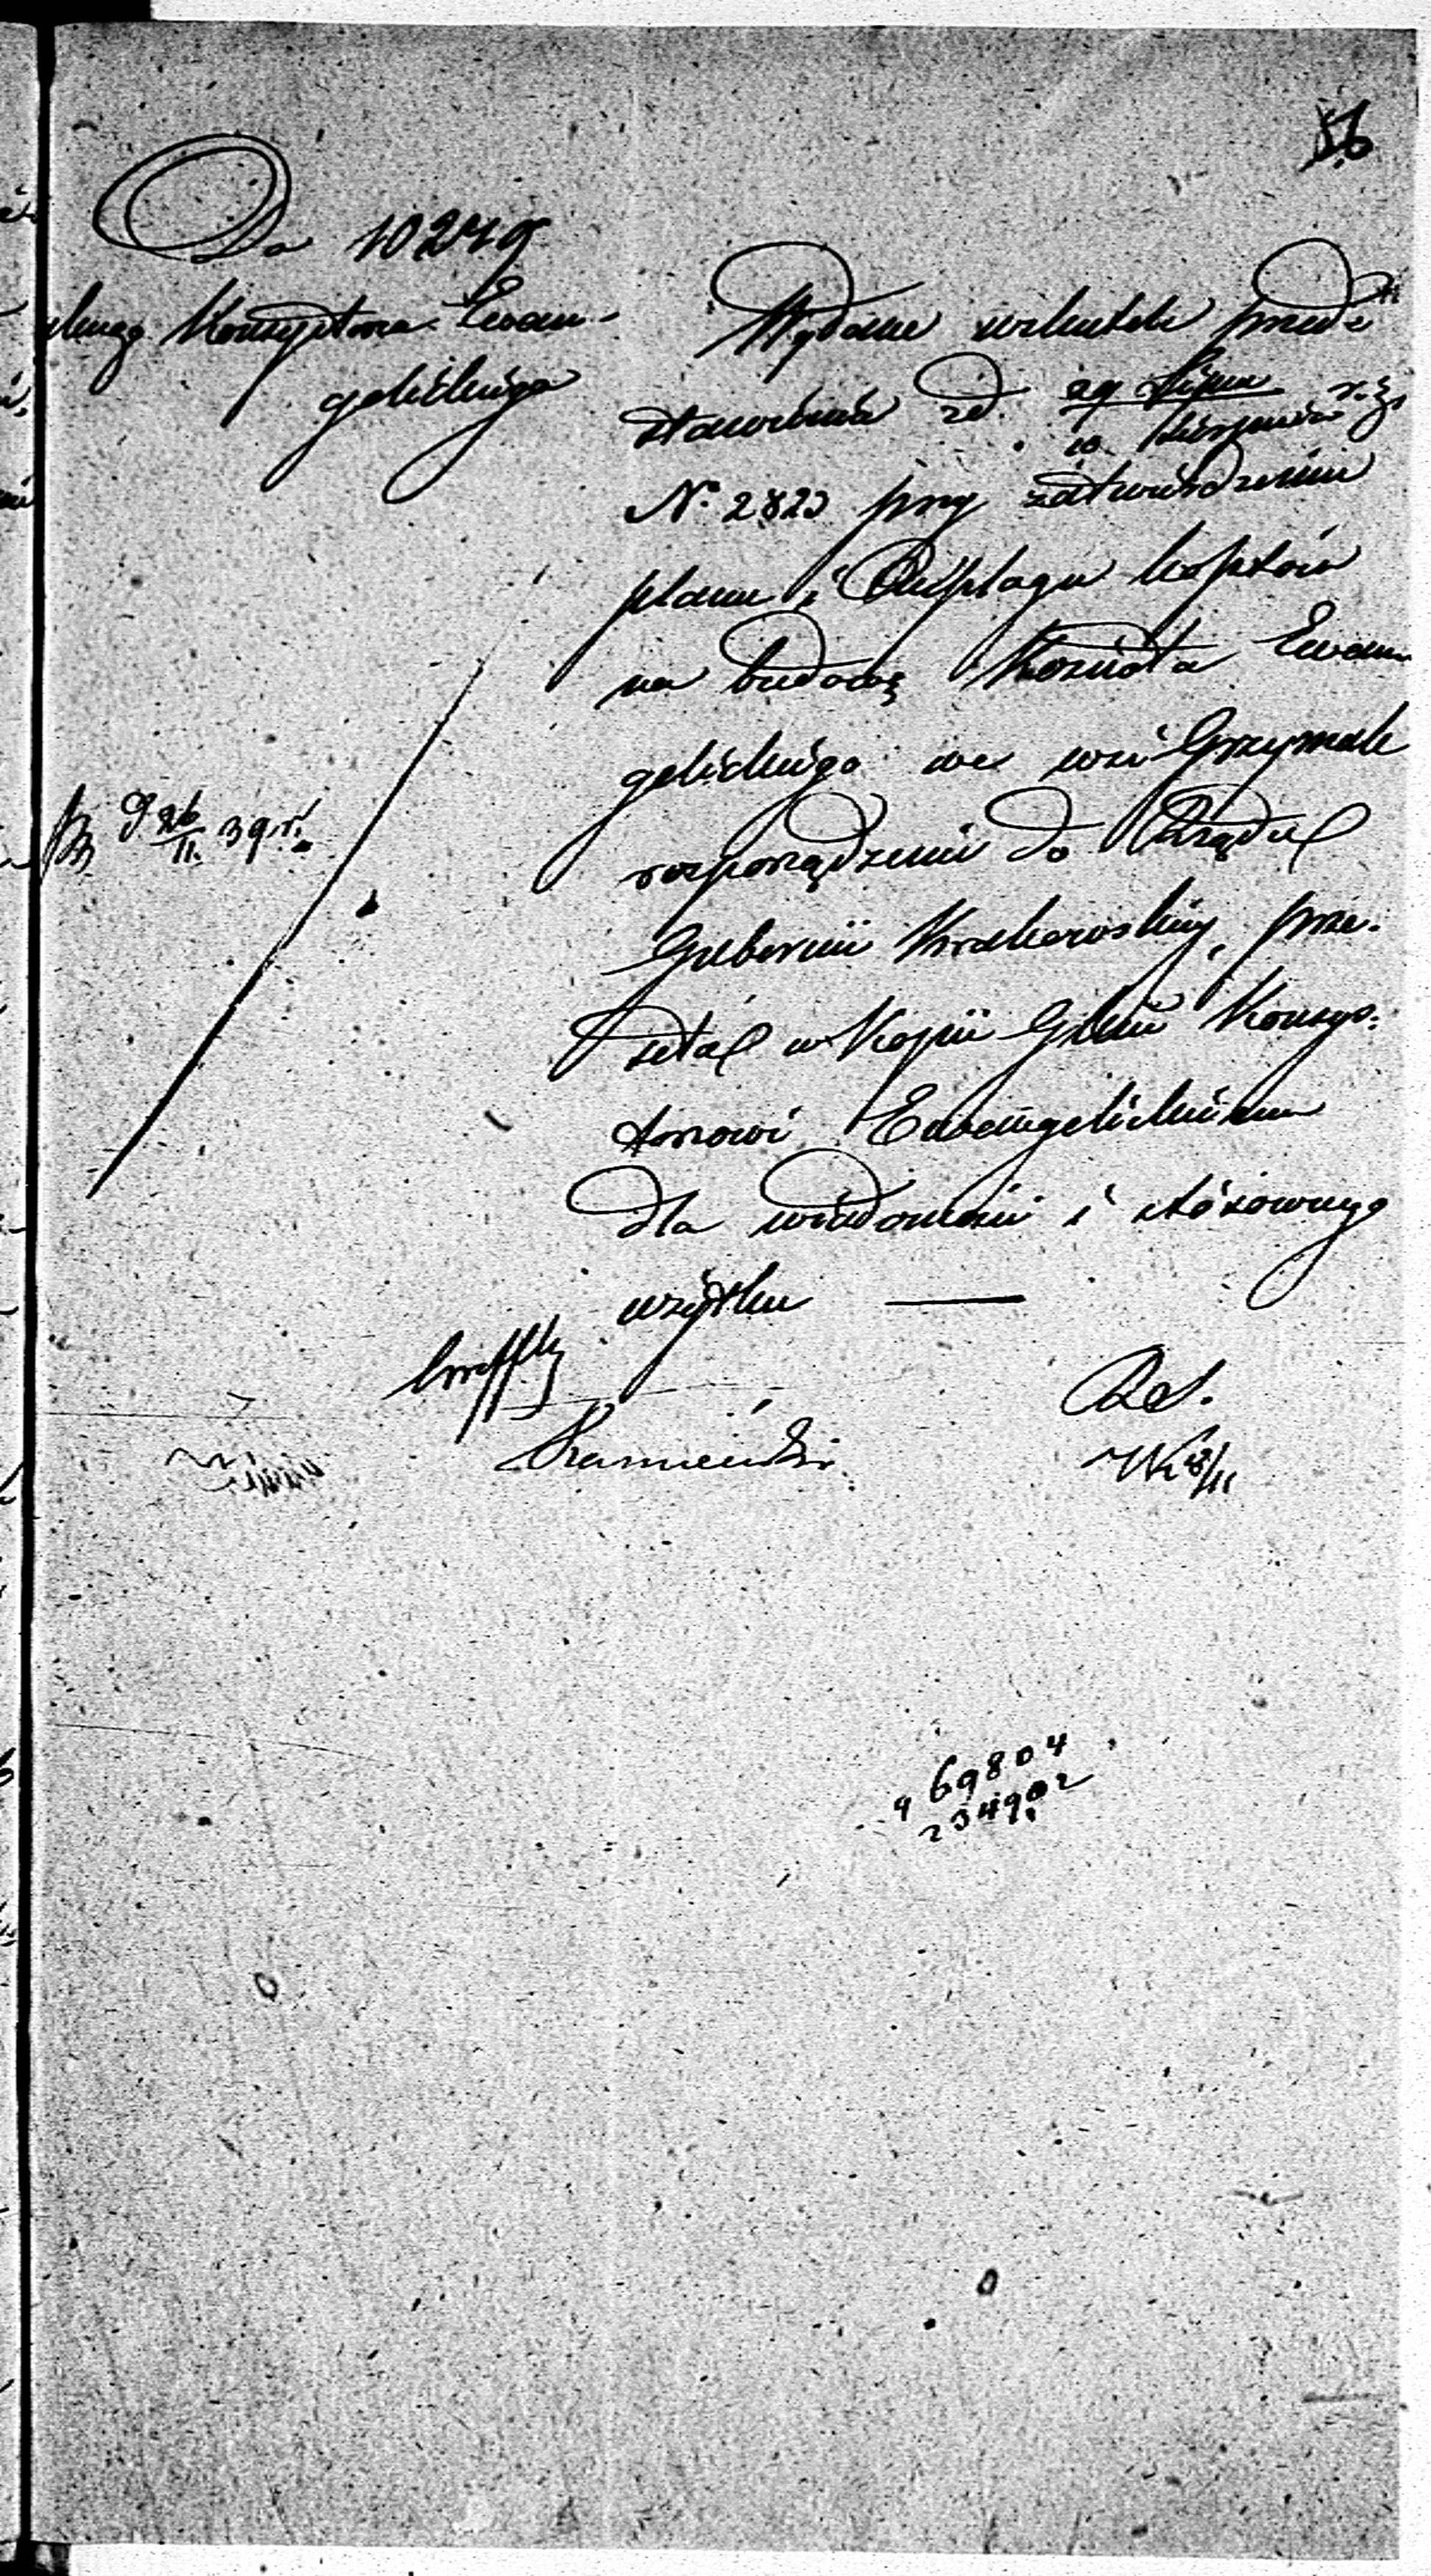 56
Do 10249
Konsystorza Ewan-
gelickiego
Wydane wskutek przed-
stawienia z d. 29 Lipca
10 Sierpnia r. z.
N. 2823 przy zatwierdzeniu
planu i Anszlagu kosztów
na budowę Kościoła Ewan
gelickiego we wsi Grzymale
rozporządzenie do Rządu
Gubernii Krakowskiey, prze-
setal w kopii Glnu Konsys-
torzowi Ewangelickiemu
dla wiadomości i stósownego
użytku —
d 26/11 39 r.
Kamieński
69804
234902